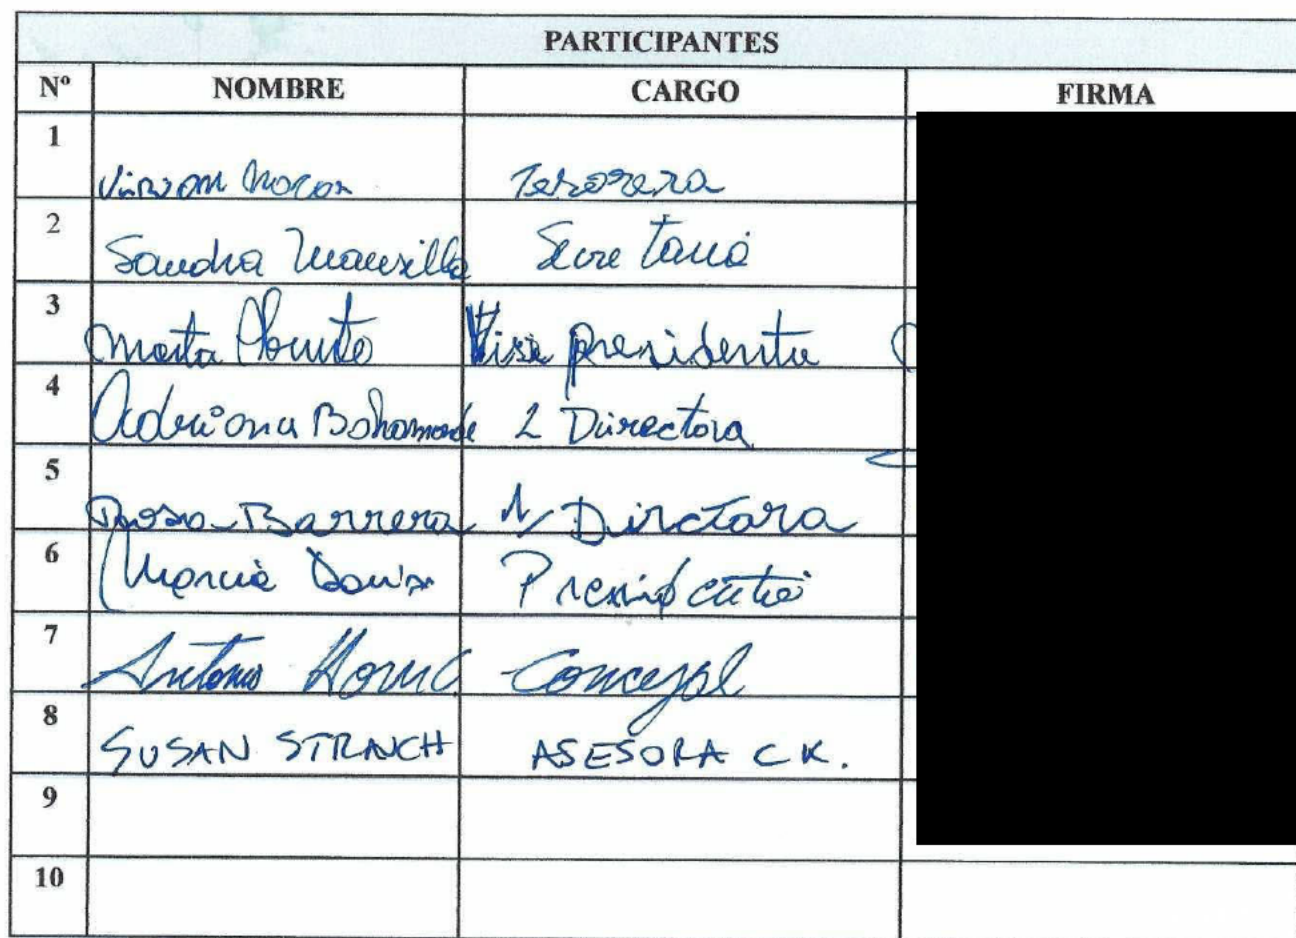 PARTICIPANTES
Nº NOMBRE CARGO FIRMA
1
Tesorera
2 Sandra Mansilla Secretaria
3 Marta Vise presidenta
4 Adriana Bahamonde 2 Directora
5 Rosa Barrera 1/ Dirctora
6 Presidenta
7 Antonio Concejal
8 SUSAN STRAUCH ASESORA C K.
9
10